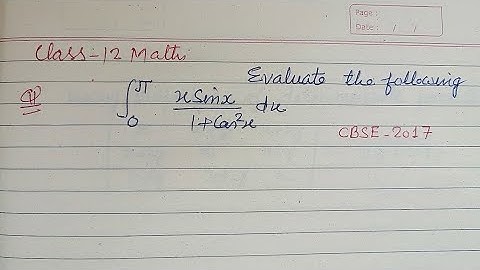 Page :
Date : / /
Class-12 Maths
Evaluate the following
Q1 ∫₀^π x Sinx / 1+Cos²x dx
CBSE-2017